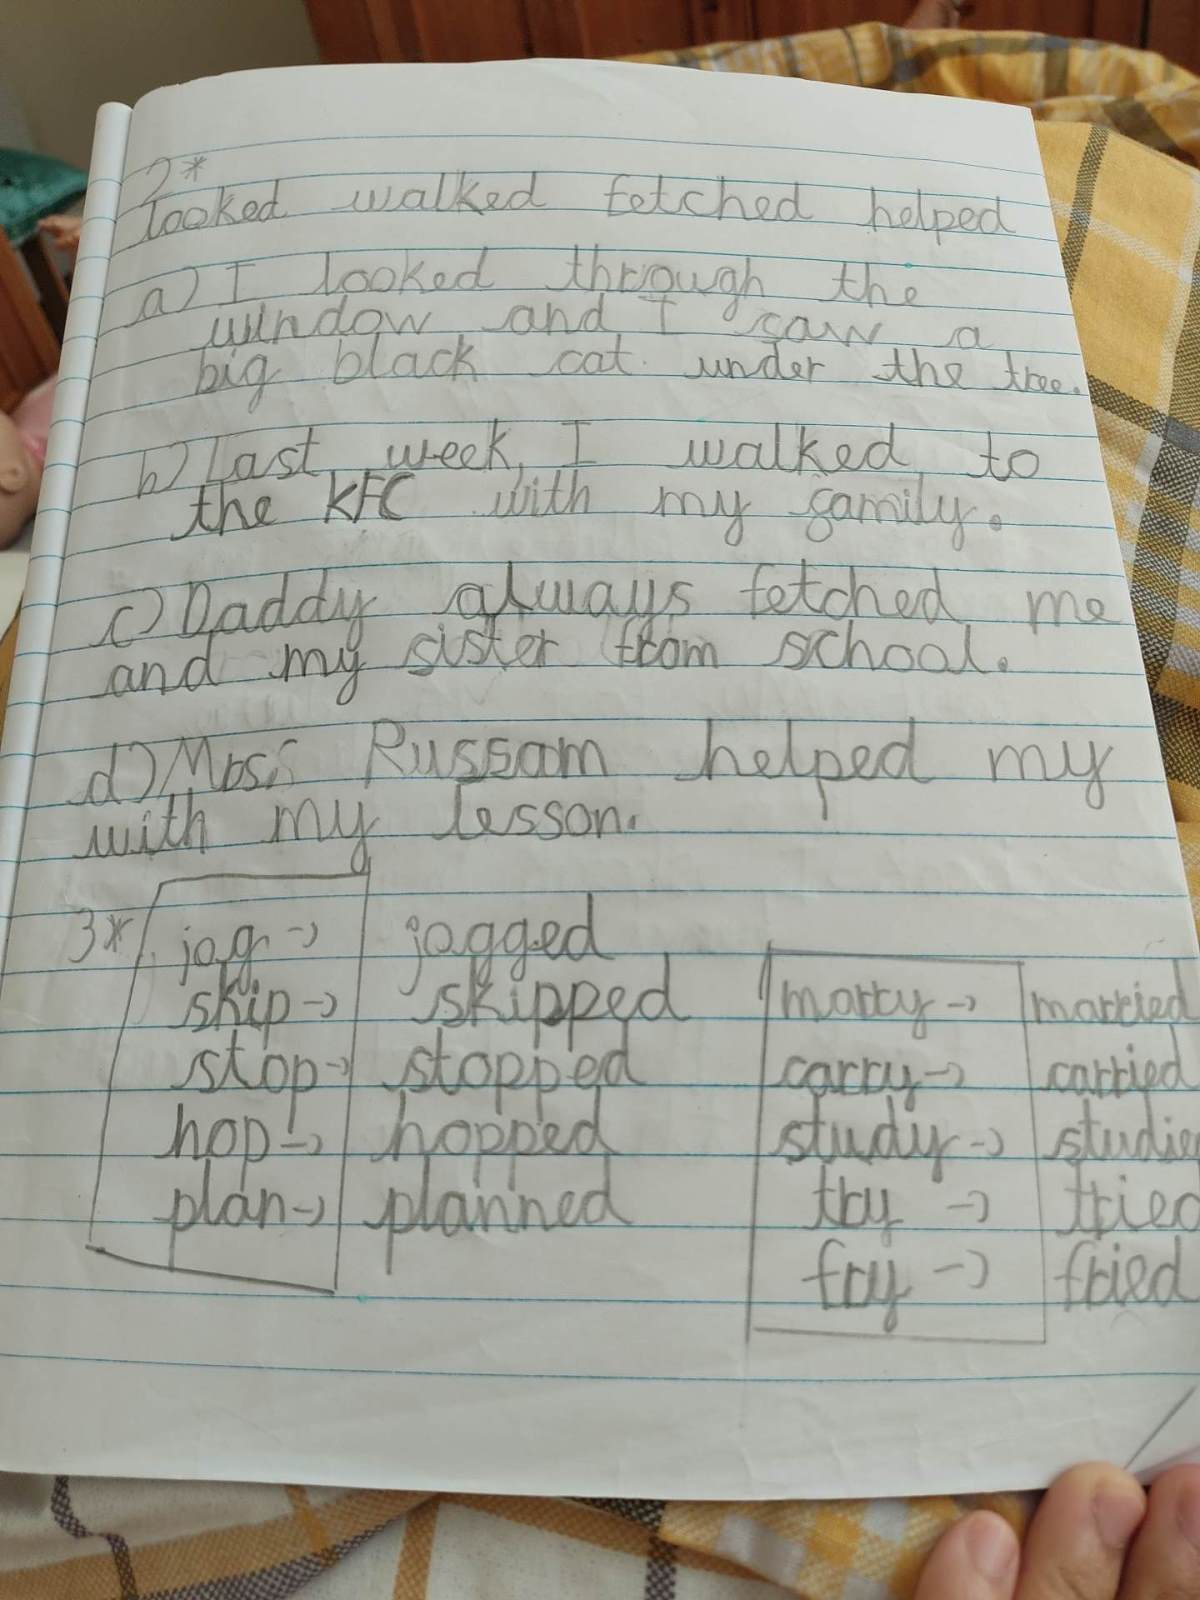 2*
looked walked fetched helped
a) I looked through the
window and I saw a
big black cat under the tree.
b) Last week, I walked to
the KFC with my family.
c) Daddy always fetched me
and my sister from school.
d) Russam helped my
with my lesson.
3* jog → jogged
skip → skipped
stop → stopped
hop → hopped
plan → planned
marry → married
carry → carried
study → studie
try → tried
fry → fried